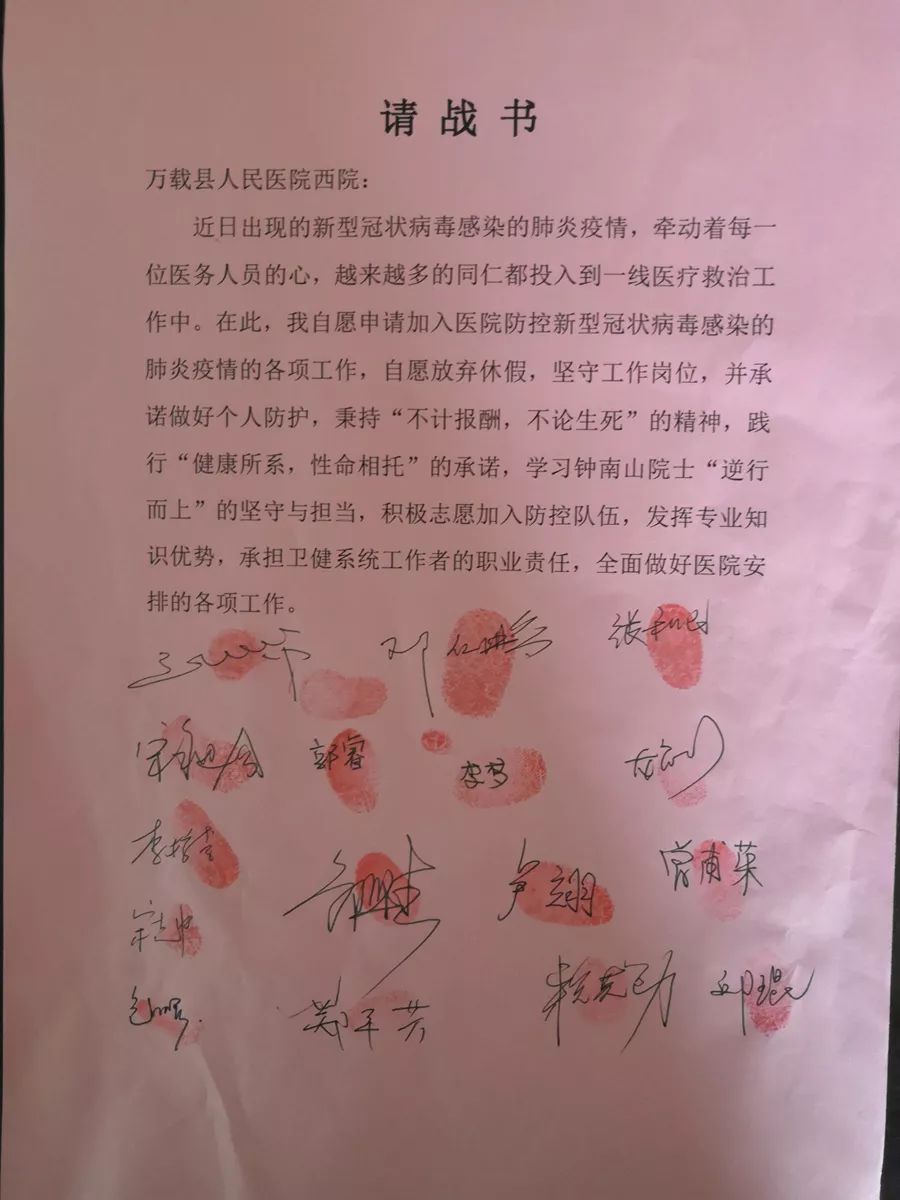 请战书
万载县人民医院西院：
近日出现的新型冠状病毒感染的肺炎疫情，牵动着每一
位医务人员的心，越来越多的同仁都投入到一线医疗救治工
作中。在此，我自愿申请加入医院防控新型冠状病毒感染的
肺炎疫情的各项工作，自愿放弃休假，坚守工作岗位，并承
诺做好个人防护，秉持“不计报酬，不论生死”的精神，践
行“健康所系，性命相托”的承诺，学习钟南山院士“逆行
而上”的坚守与担当，积极志愿加入防控队伍，发挥专业知
识优势，承担卫健系统工作者的职业责任，全面做好医院安
排的各项工作。
郭睿 李梦
尹翊 曾甫菜
郑平芳 邱琨